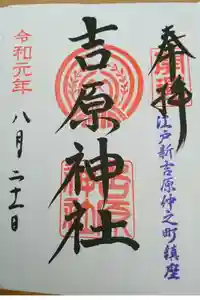 奉拝
江戸新吉原仲之町鎮座
吉原神社
令和元年
八月二十一日